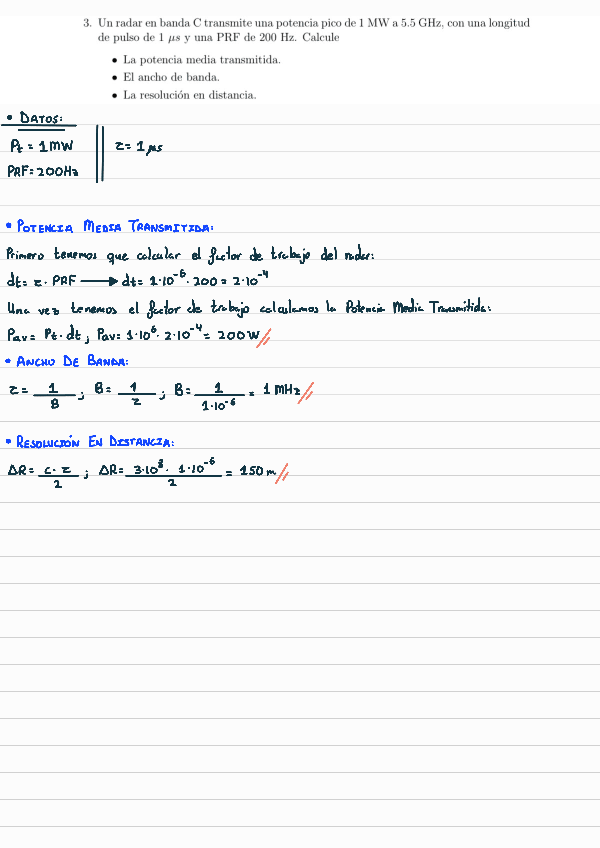 3. Un radar en banda C transmite una potencia pico de 1 MW a 5.5 GHz, con una longitud
de pulso de 1 μs y una PRF de 200 Hz. Calcule
• La potencia media transmitida.
• El ancho de banda.
• La resolución en distancia.
• DATOS:
Pt = 1MW || τ = 1 μs
PRF = 200Hz
• POTENCIA MEDIA TRANSMITIDA:
Primero tenemos que calcular el factor de trabajo del radar:
dt = τ · PRF → dt = 1·10⁻⁶ · 200 = 2·10⁻⁴
Una vez tenemos el factor de trabajo calculamos la Potencia Media Transmitida:
Pav = Pt · dt ; Pav = 1·10⁶ · 2·10⁻⁴ = 200W //
• ANCHO DE BANDA:
τ = 1/B ; B = 1/τ ; B = 1/1·10⁻⁶ = 1 MHz //
• RESOLUCIÓN EN DISTANCIA:
ΔR = c · τ/2 ; ΔR = 3·10⁸ · 1·10⁻⁶/2 = 150 m //